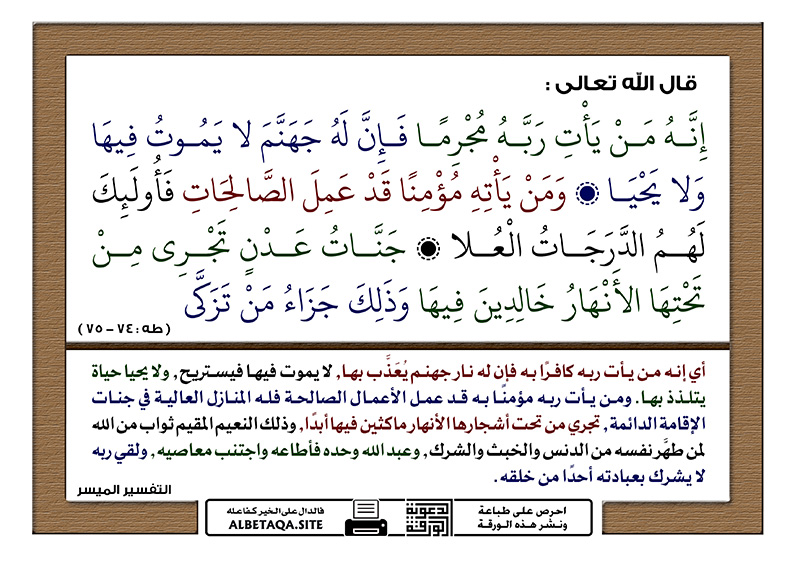 قال الله تعالى :
إِنَّهُ مَنْ يَأْتِ رَبَّهُ مُجْرِمًا فَإِنَّ لَهُ جَهَنَّمَ لا يَمُوتُ فِيهَا
وَلا يَحْيَا ۞ وَمَنْ يَأْتِهِ مُؤْمِنًا قَدْ عَمِلَ الصَّالِحَاتِ فَأُولَئِكَ
لَهُمُ الدَّرَجَاتُ الْعُلا ۞ جَنَّاتُ عَدْنٍ تَجْرِى مِنْ
تَحْتِهَا الأَنْهَارُ خَالِدِينَ فِيهَا وَذَلِكَ جَزَاءُ مَنْ تَزَكَّى
(طه: ٧٤ - ٧٥)
أي إنه من يأت ربه كافرًا به فإن له نار جهنم يُعَذَّب بها, لا يموت فيها فيستريح, ولا يحيا حياة
يتلذذ بها. ومن يأت ربه مؤمنًا به قد عمل الأعمال الصالحة فله المنازل العالية في جنات
الإقامة الدائمة, تجري من تحت أشجارها الأنهار ماكثين فيها أبدًا, وذلك النعيم المقيم ثواب من الله
لمن طهَّر نفسه من الدنس والخبث والشرك, وعبد الله وحده فأطاعه واجتنب معاصيه, ولقي ربه
لا يشرك بعبادته أحدًا من خلقه.
التفسير الميسر
احرص على طباعة
ونشر هذه الورقة
الدعوية
الورقة
فالدال على الخير كفاعله
ALBETAQA.SITE